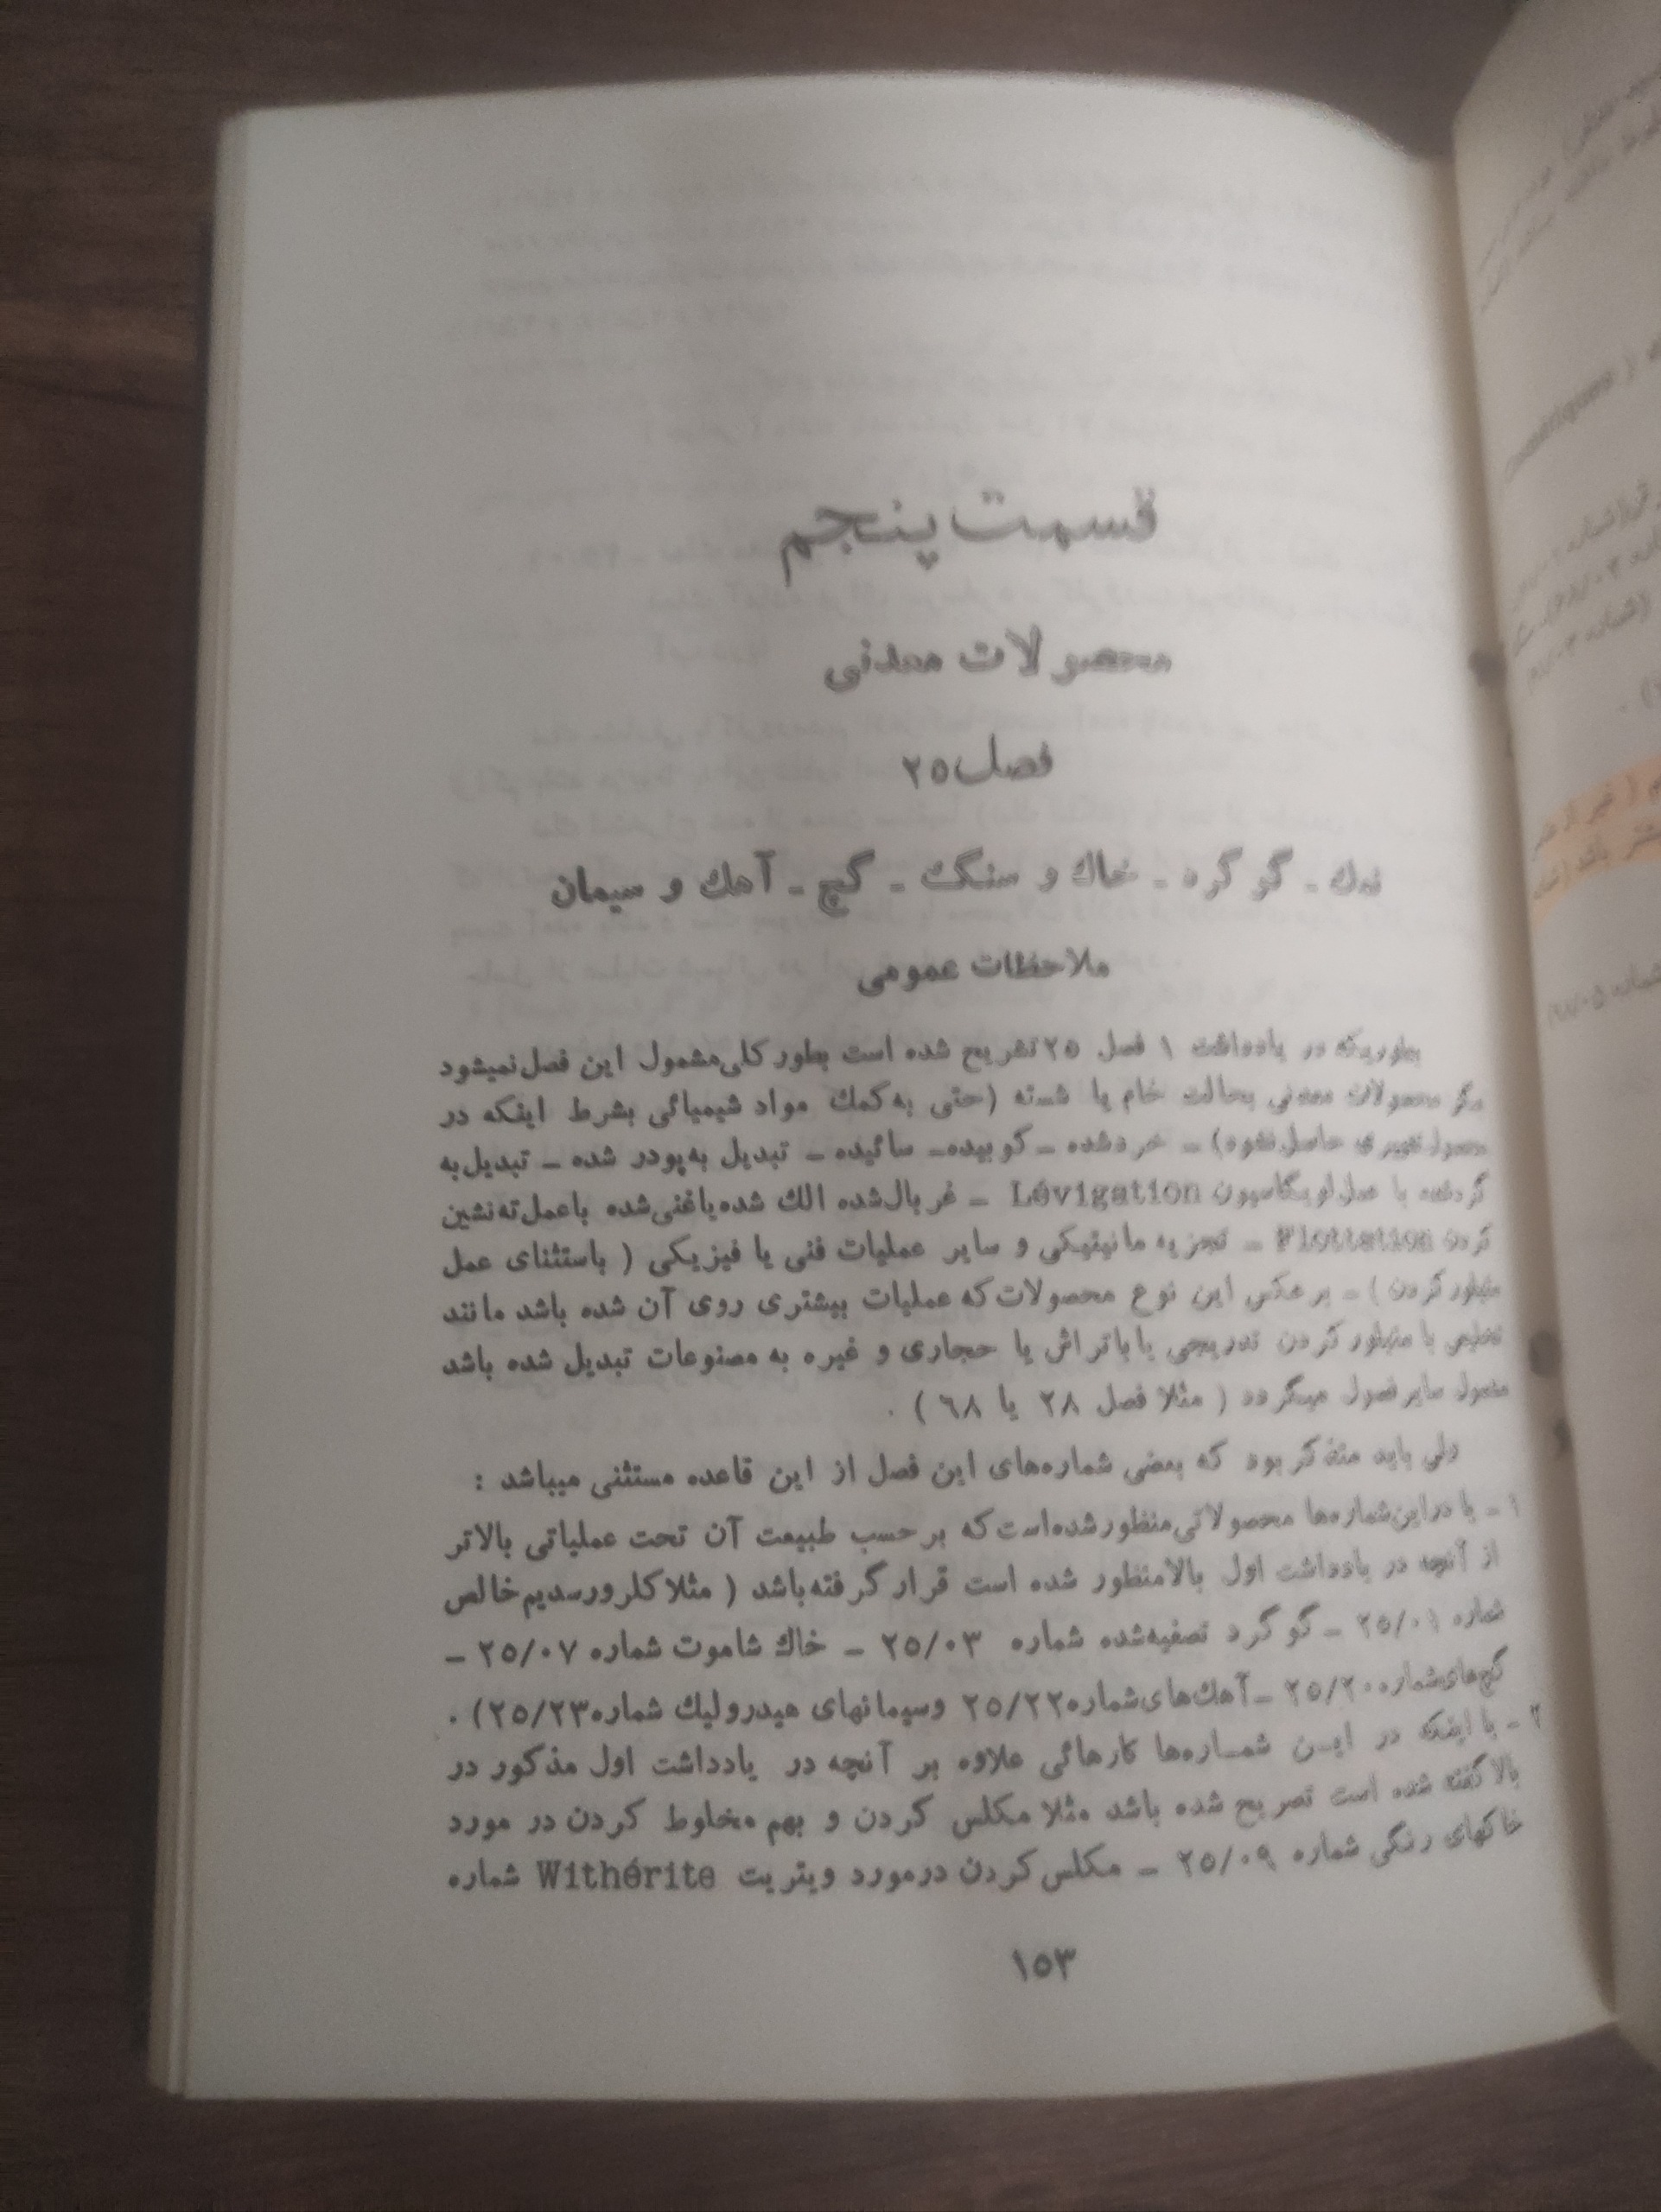 قسمت پنجم
محصولات معدنی
فصل ۲۵
نمك - گوگرد - خاك و سنگ - گچ - آهك و سیمان
ملاحظات عمومی
بطوریکه در یادداشت ۱ فصل ۲۵ تشریح شده است بطور کلی مشمول این فصل نمیشود
مگر محصولات معدنی بحالت خام یا شسته (حتی به کمك مواد شیمیائی بشرط اینکه در
محصول تغییری حاصل نشود) - خرد شده - کوبیده - سائیده - تبدیل به پودر شده - تبدیل به
گرد شده با عمل لویگاسیون Lévigation - غربال شده الك شده یا غنی شده با عمل ته نشین
کردن Flottation - تجزیه مانیتیکی و سایر عملیات فنی یا فیزیکی ( باستثنای عمل
متبلور کردن ) - برعکس این نوع محصولات که عملیات بیشتری روی آن شده باشد مانند
تخلیص با متبلور کردن تدریجی یا با تراش یا حجاری و غیره به مصنوعات تبدیل شده باشد
مشمول سایر فصول میگردد ( مثلا فصل ۲۸ یا ۶۸ ) .
ولی باید متذکر بود که بعضی شماره‌های این فصل از این قاعده مستثنی میباشد :
۱ - یا در این شماره‌ها محصولاتی منظور شده است که بر حسب طبیعت آن تحت عملیاتی بالاتر
از آنچه در یادداشت اول بالا منظور شده است قرار گرفته باشد ( مثلا کلرور سدیم خالص
شماره ۲۵/۰۱ - گوگرد تصفیه شده شماره ۲۵/۰۳ - خاك شاموت شماره ۲۵/۰۷ -
گچ‌های شماره ۲۵/۲۰ - آهك‌های شماره ۲۵/۲۲ و سیمانهای هیدرولیك شماره ۲۵/۲۳) .
۲ - یا اینکه در ایـن شمـاره‌ها کارهائی علاوه بر آنچه در یادداشت اول مذکور در
بالا گفته شده است تصریح شده باشد مثلا مکلس کردن و بهم مخلوط کردن در مورد
خاکهای رنگی شماره ۲۵/۰۹ - مکلس کردن در مورد ویتریت Withérite شماره
۱۵۳